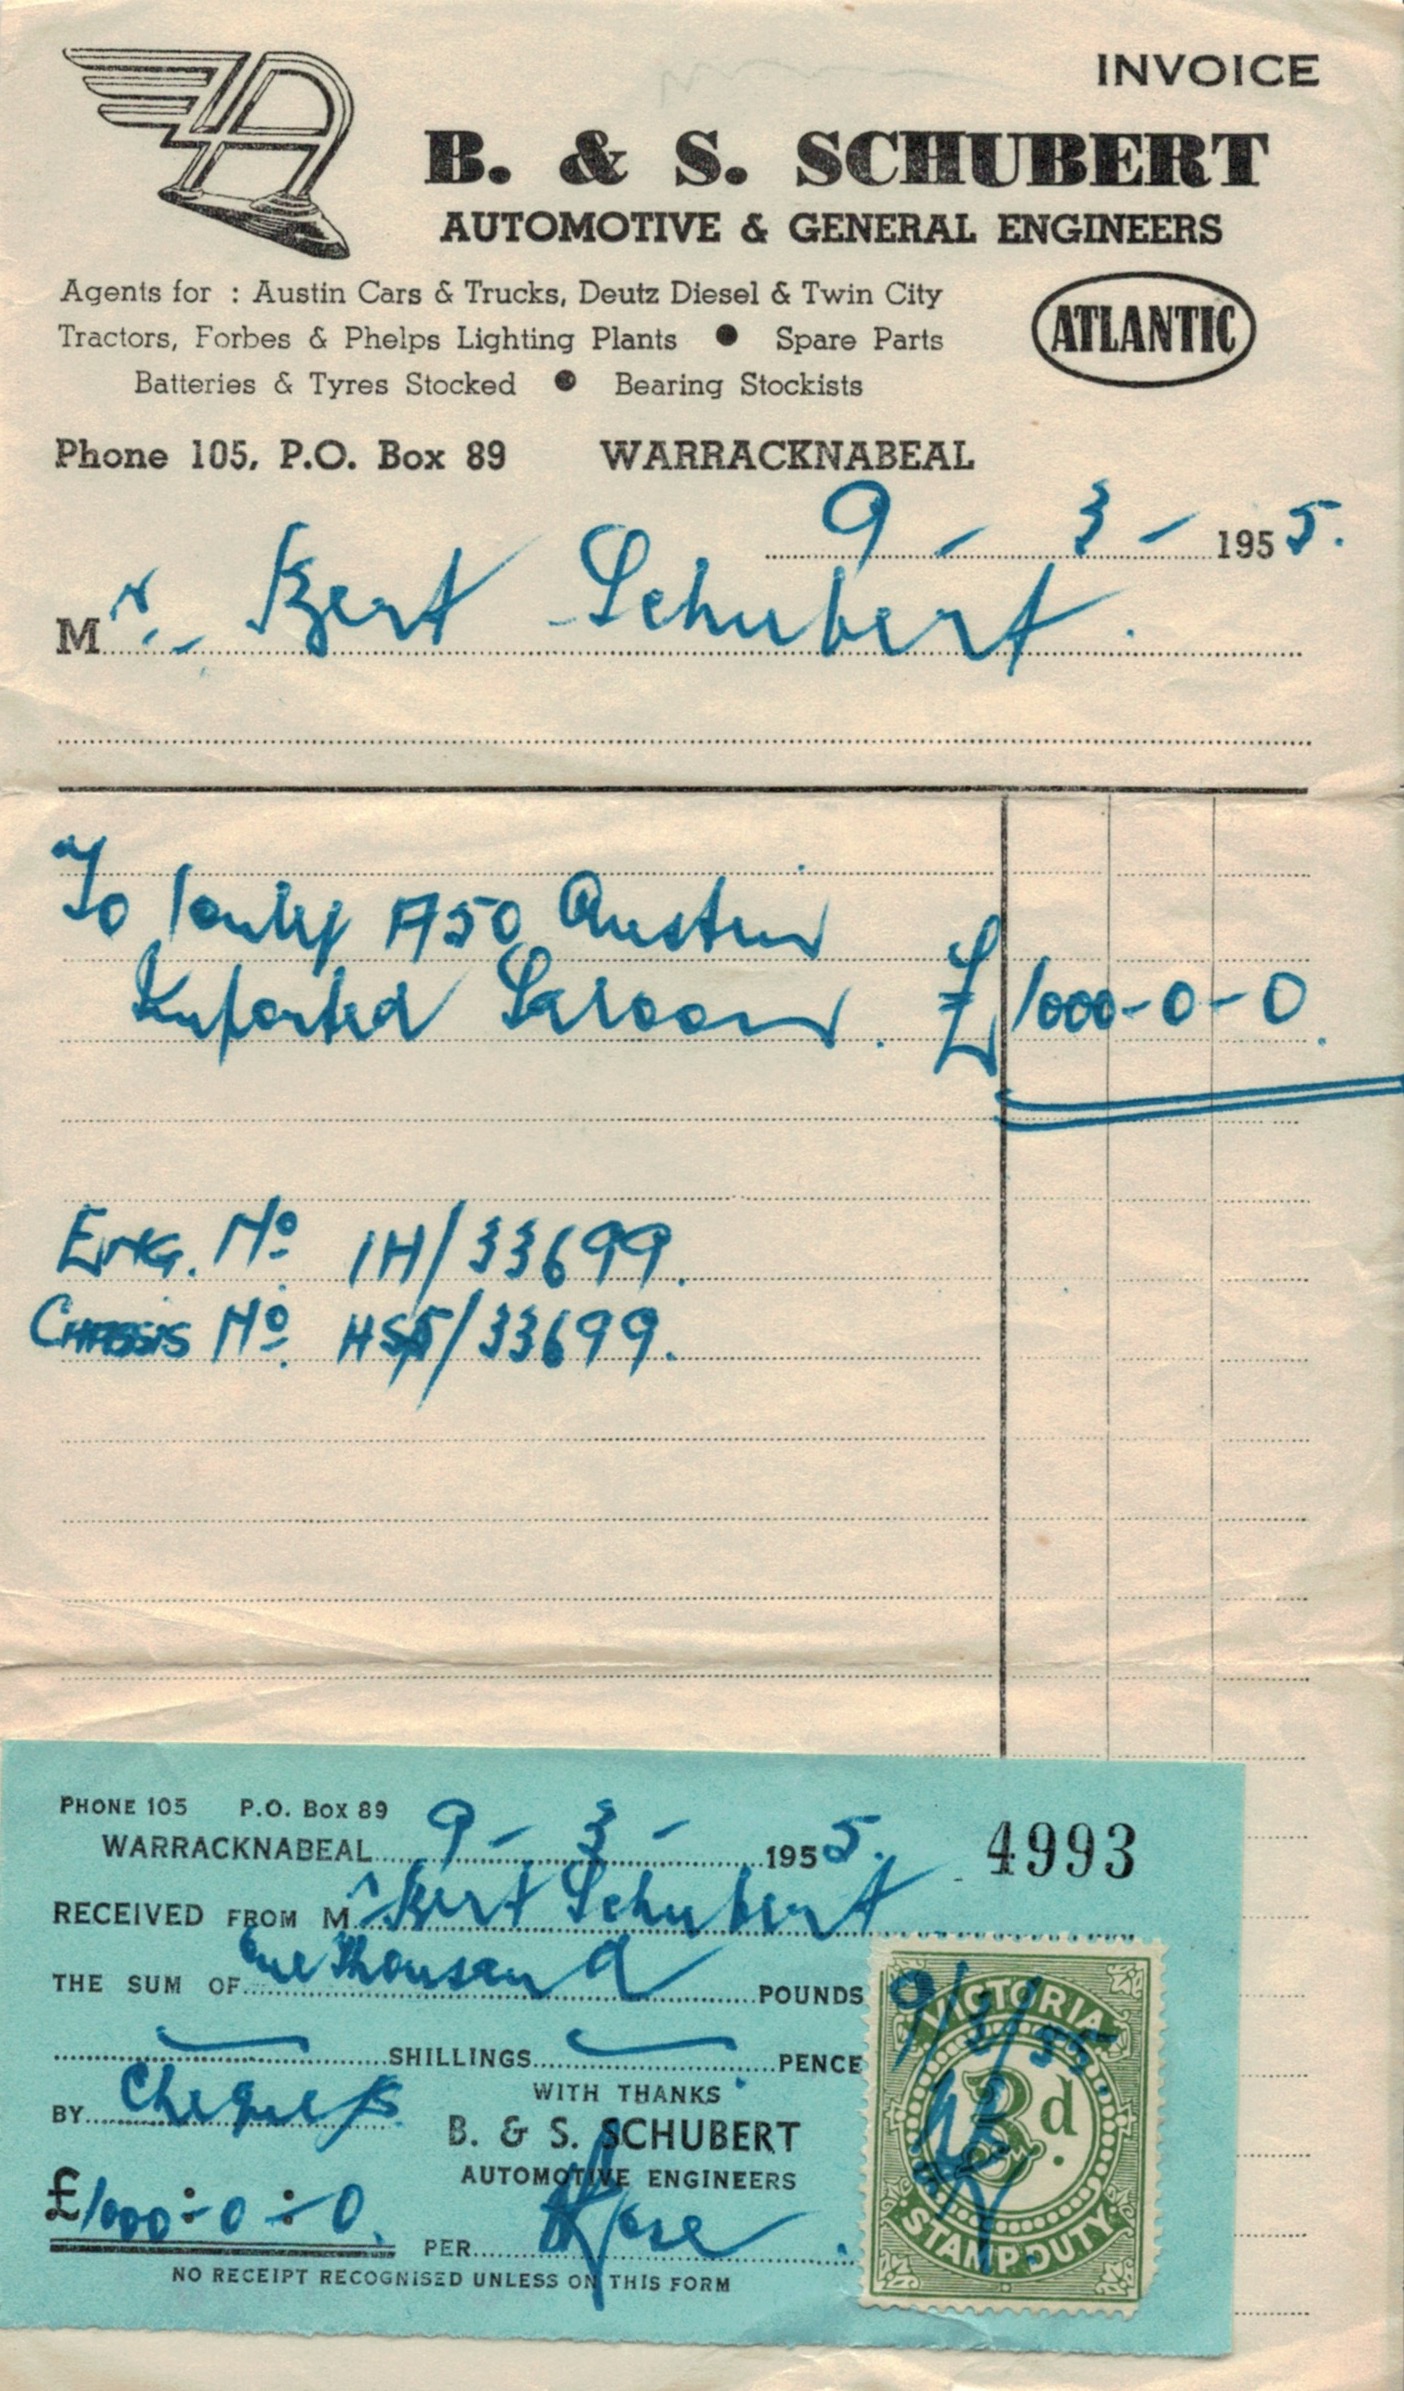 INVOICE
B. & S. SCHUBERT
AUTOMOTIVE & GENERAL ENGINEERS
Agents for : Austin Cars & Trucks, Deutz Diesel & Twin City
Tractors, Forbes & Phelps Lighting Plants ● Spare Parts
Batteries & Tyres Stocked ● Bearing Stockists
ATLANTIC
Phone 105, P.O. Box 89 WARRACKNABEAL
9 - 3 - 1955.
Mr. Bert Schubert.
To 1 only A50 Austin
Imported Saloon. £1000-0-0.
ENG. No 1H/33699.
CHASSIS No HS5/33699.
PHONE 105 P.O. BOX 89
WARRACKNABEAL 9 - 3 - 1955. 4993
RECEIVED FROM Mr Bert Schubert
THE SUM OF One Thousand POUNDS
SHILLINGS PENCE
BY Cheques WITH THANKS
B. & S. SCHUBERT
AUTOMOTIVE ENGINEERS
£1000:-0:-0. PER
NO RECEIPT RECOGNISED UNLESS ON THIS FORM
9/3/55.
VICTORIA
3d.
STAMP DUTY